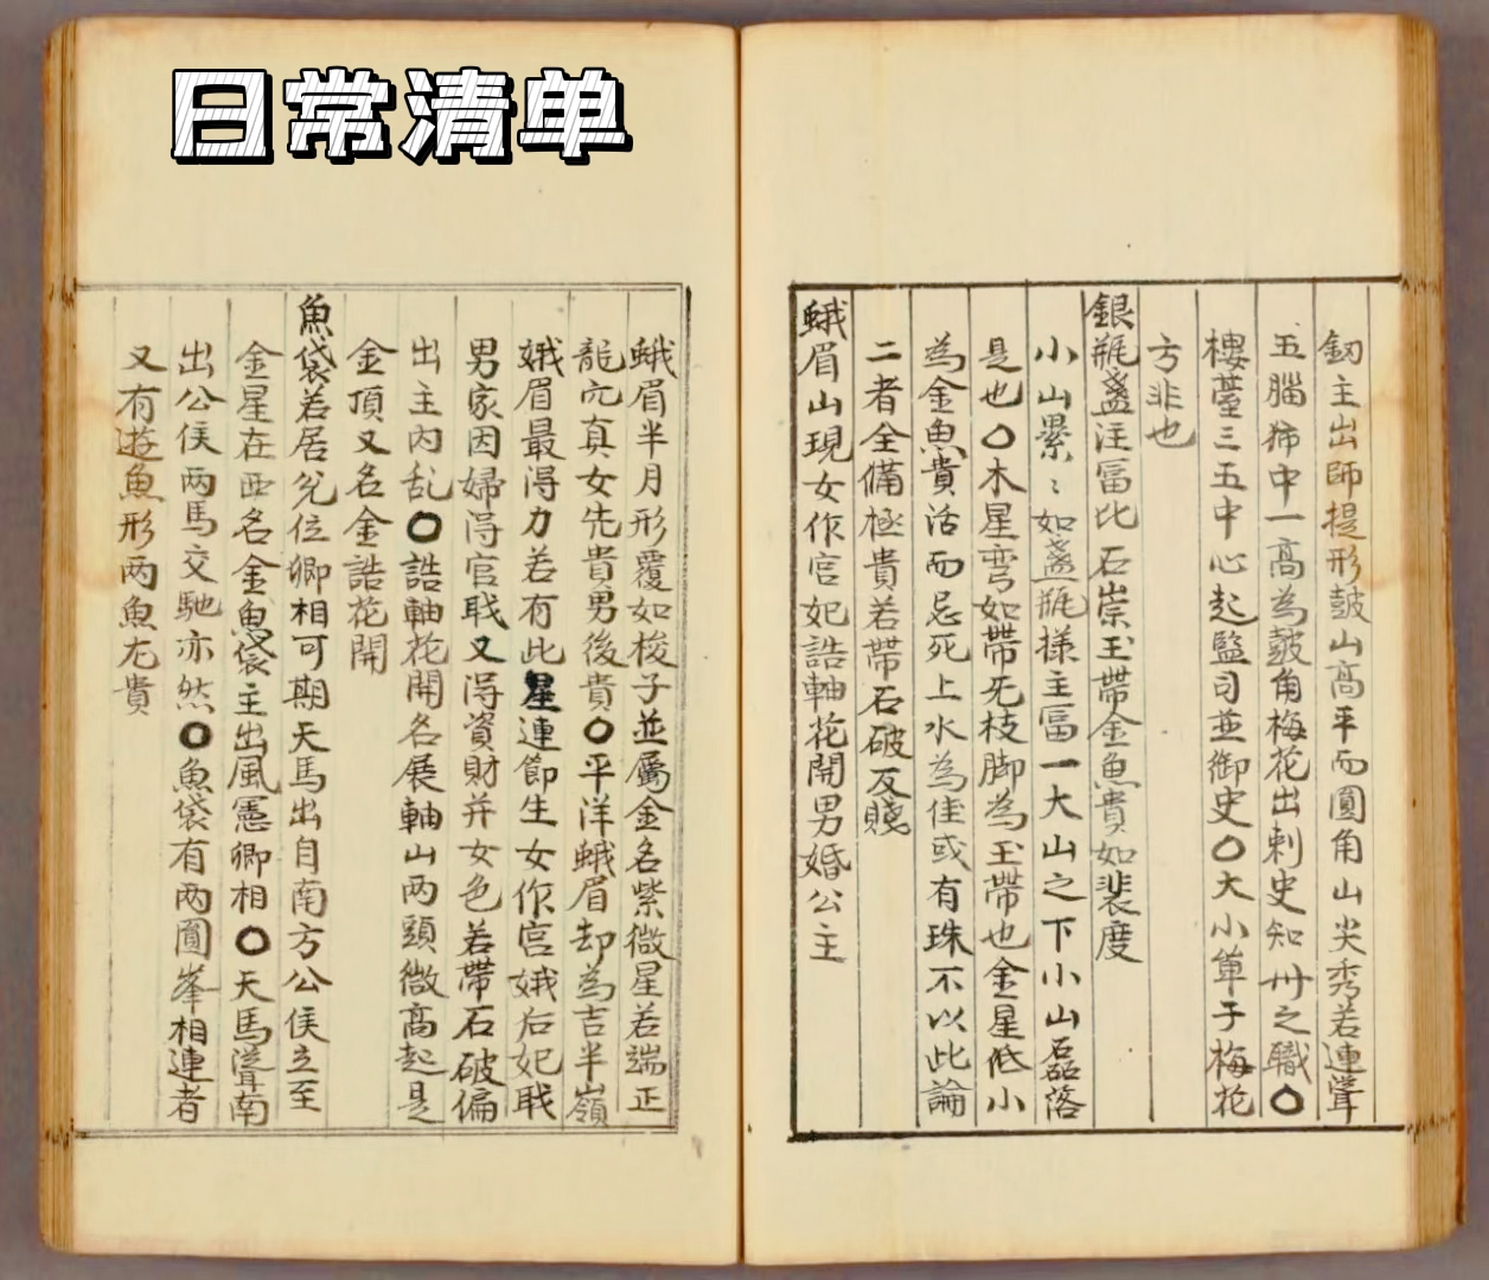 日常清单
釰主出師提形皷山高平而圓角山尖秀若連聳
五腦狮中一高為皷角梅花出刺史知州之職〇
樓䑓三五中心起監司並御史〇大小箪于梅花
方非也
銀瓶盞注冨比石崇玉帶金魚貴如裴度
小山累〻如盞瓶様主冨一大山之下小山磊落
是也〇木星弯如帶死枝脚為玉帶也金星低小
為金魚貴活而忌死上水為佳或有珠不以此論
二者全備極貴若帶石破反賤
蛾眉山現女作宫妃誥軸花開男婚公主
蛾眉半月形覆如梭子並屬金名紫微星若端正
龍穴真女先貴男後貴〇平洋蛾眉却為吉半嶺
娥眉最得力若有此星連節生女作宫娥后妃戝
男家因婦淂官戝又淂資財并女色若帶石破偏
出主内乱〇誥軸花開名展軸山两頭微高起是
金頂又名金誥花開
魚袋若居兊位卿相可期天馬出自南方公侯立至
金星在西名金魚袋主出風憲卿相〇天馬聳南
出公侯两馬交馳亦然〇魚袋有两圓峯相連者
又有遊魚形两魚尢貴